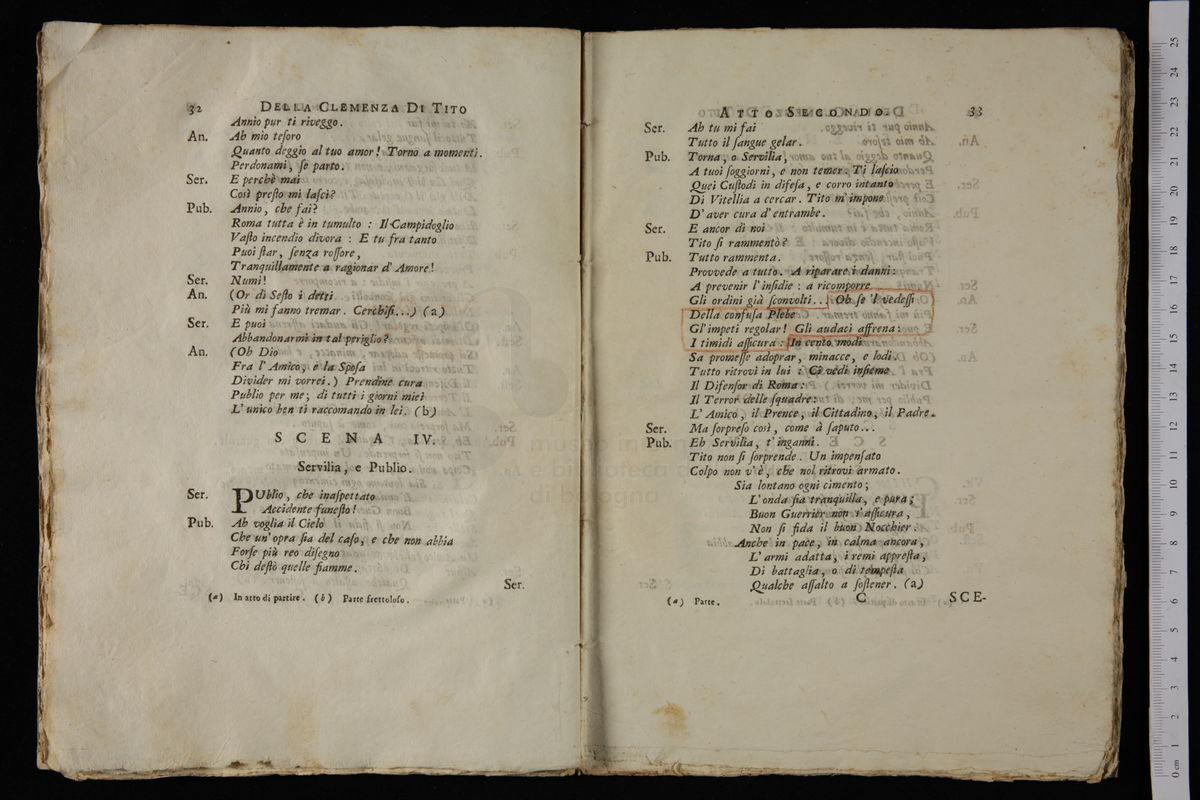 32 DELLA CLEMENZA DI TITO
Annio pur ti riveggo.
An. Ah mio teſoro
Quanto deggio al tuo amor! Torno a momenti.
Perdonami, ſe parto.
Ser. E perchè mai
Così preſto mi laſci?
Pub. Annio, che fai?
Roma tutta è in tumulto : Il Campidoglio
Vaſto incendio divora : E tu fra tanto
Puoi ſtar, ſenza roſſore,
Tranquillamente a ragionar d' Amore!
Ser. Numi!
An. (Or di Seſto i detti
Più mi fanno tremar. Cerchiſi...) (a)
Ser. E puoi
Abbandonarmi in tal periglio?
An. (Oh Dio
Fra l' Amico, e la Spoſa
Divider mi vorrei.) Prendine cura
Publio per me; di tutti i giorni miei
L' unico ben ti raccomando in lei. (b)
SCENA IV.
Servilia, e Publio.
Ser. PUblio, che inaſpettato
Accidente funeſto!
Pub. Ah voglia il Cielo
Che un' opra ſia del caſo, e che non abbia
Forſe più reo diſegno
Chi deſtò quelle fiamme.
Ser.
(a) In atto di partire. (b) Parte frettoloſo.
ATTO SECONDO. 33
Ser. Ah tu mi fai
Tutto il ſangue gelar.
Pub. Torna, o Servilia,
A tuoi ſoggiorni, e non temer. Ti laſcio
Quei Cuſtodi in difeſa, e corro intanto
Di Vitellia a cercar. Tito m' impone
D' aver cura d' entrambe.
Ser. E ancor di noi
Tito ſi rammentò?
Pub. Tutto rammenta.
Provvede a tutto. A riparare i danni :
A prevenir l' inſidie : a ricomporre
Gli ordini già ſconvolti... Oh ſe 'l vedeſſi
Della confuſa Plebe
Gl' impeti regolar! Gli audaci affrena :
I timidi aſſicura : In cento modi
Sa promeſſe adoprar, minacce, e lodi.
Tutto ritrovi in lui : Ci vedi inſieme
Il Difenſor di Roma :
Il Terror delle ſquadre :
L' Amico, il Prence, il Cittadino, il Padre.
Ser. Ma ſorpreſo così, come à ſaputo...
Pub. Eh Servilia, t' inganni.
Tito non ſi ſorprende. Un impenſato
Colpo non v' è, che nol ritrovi armato.
Sia lontano ogni cimento;
L' onda ſia tranquilla, e pura;
Buon Guerrier non s' aſſicura,
Non ſi fida il buon Nocchier.
Anche in pace, in calma ancora,
L' armi adatta, i remi appreſta,
Di battaglia, o di tempeſta
Qualche aſſalto a ſoſtener. (a)
(a) Parte. C SCE-